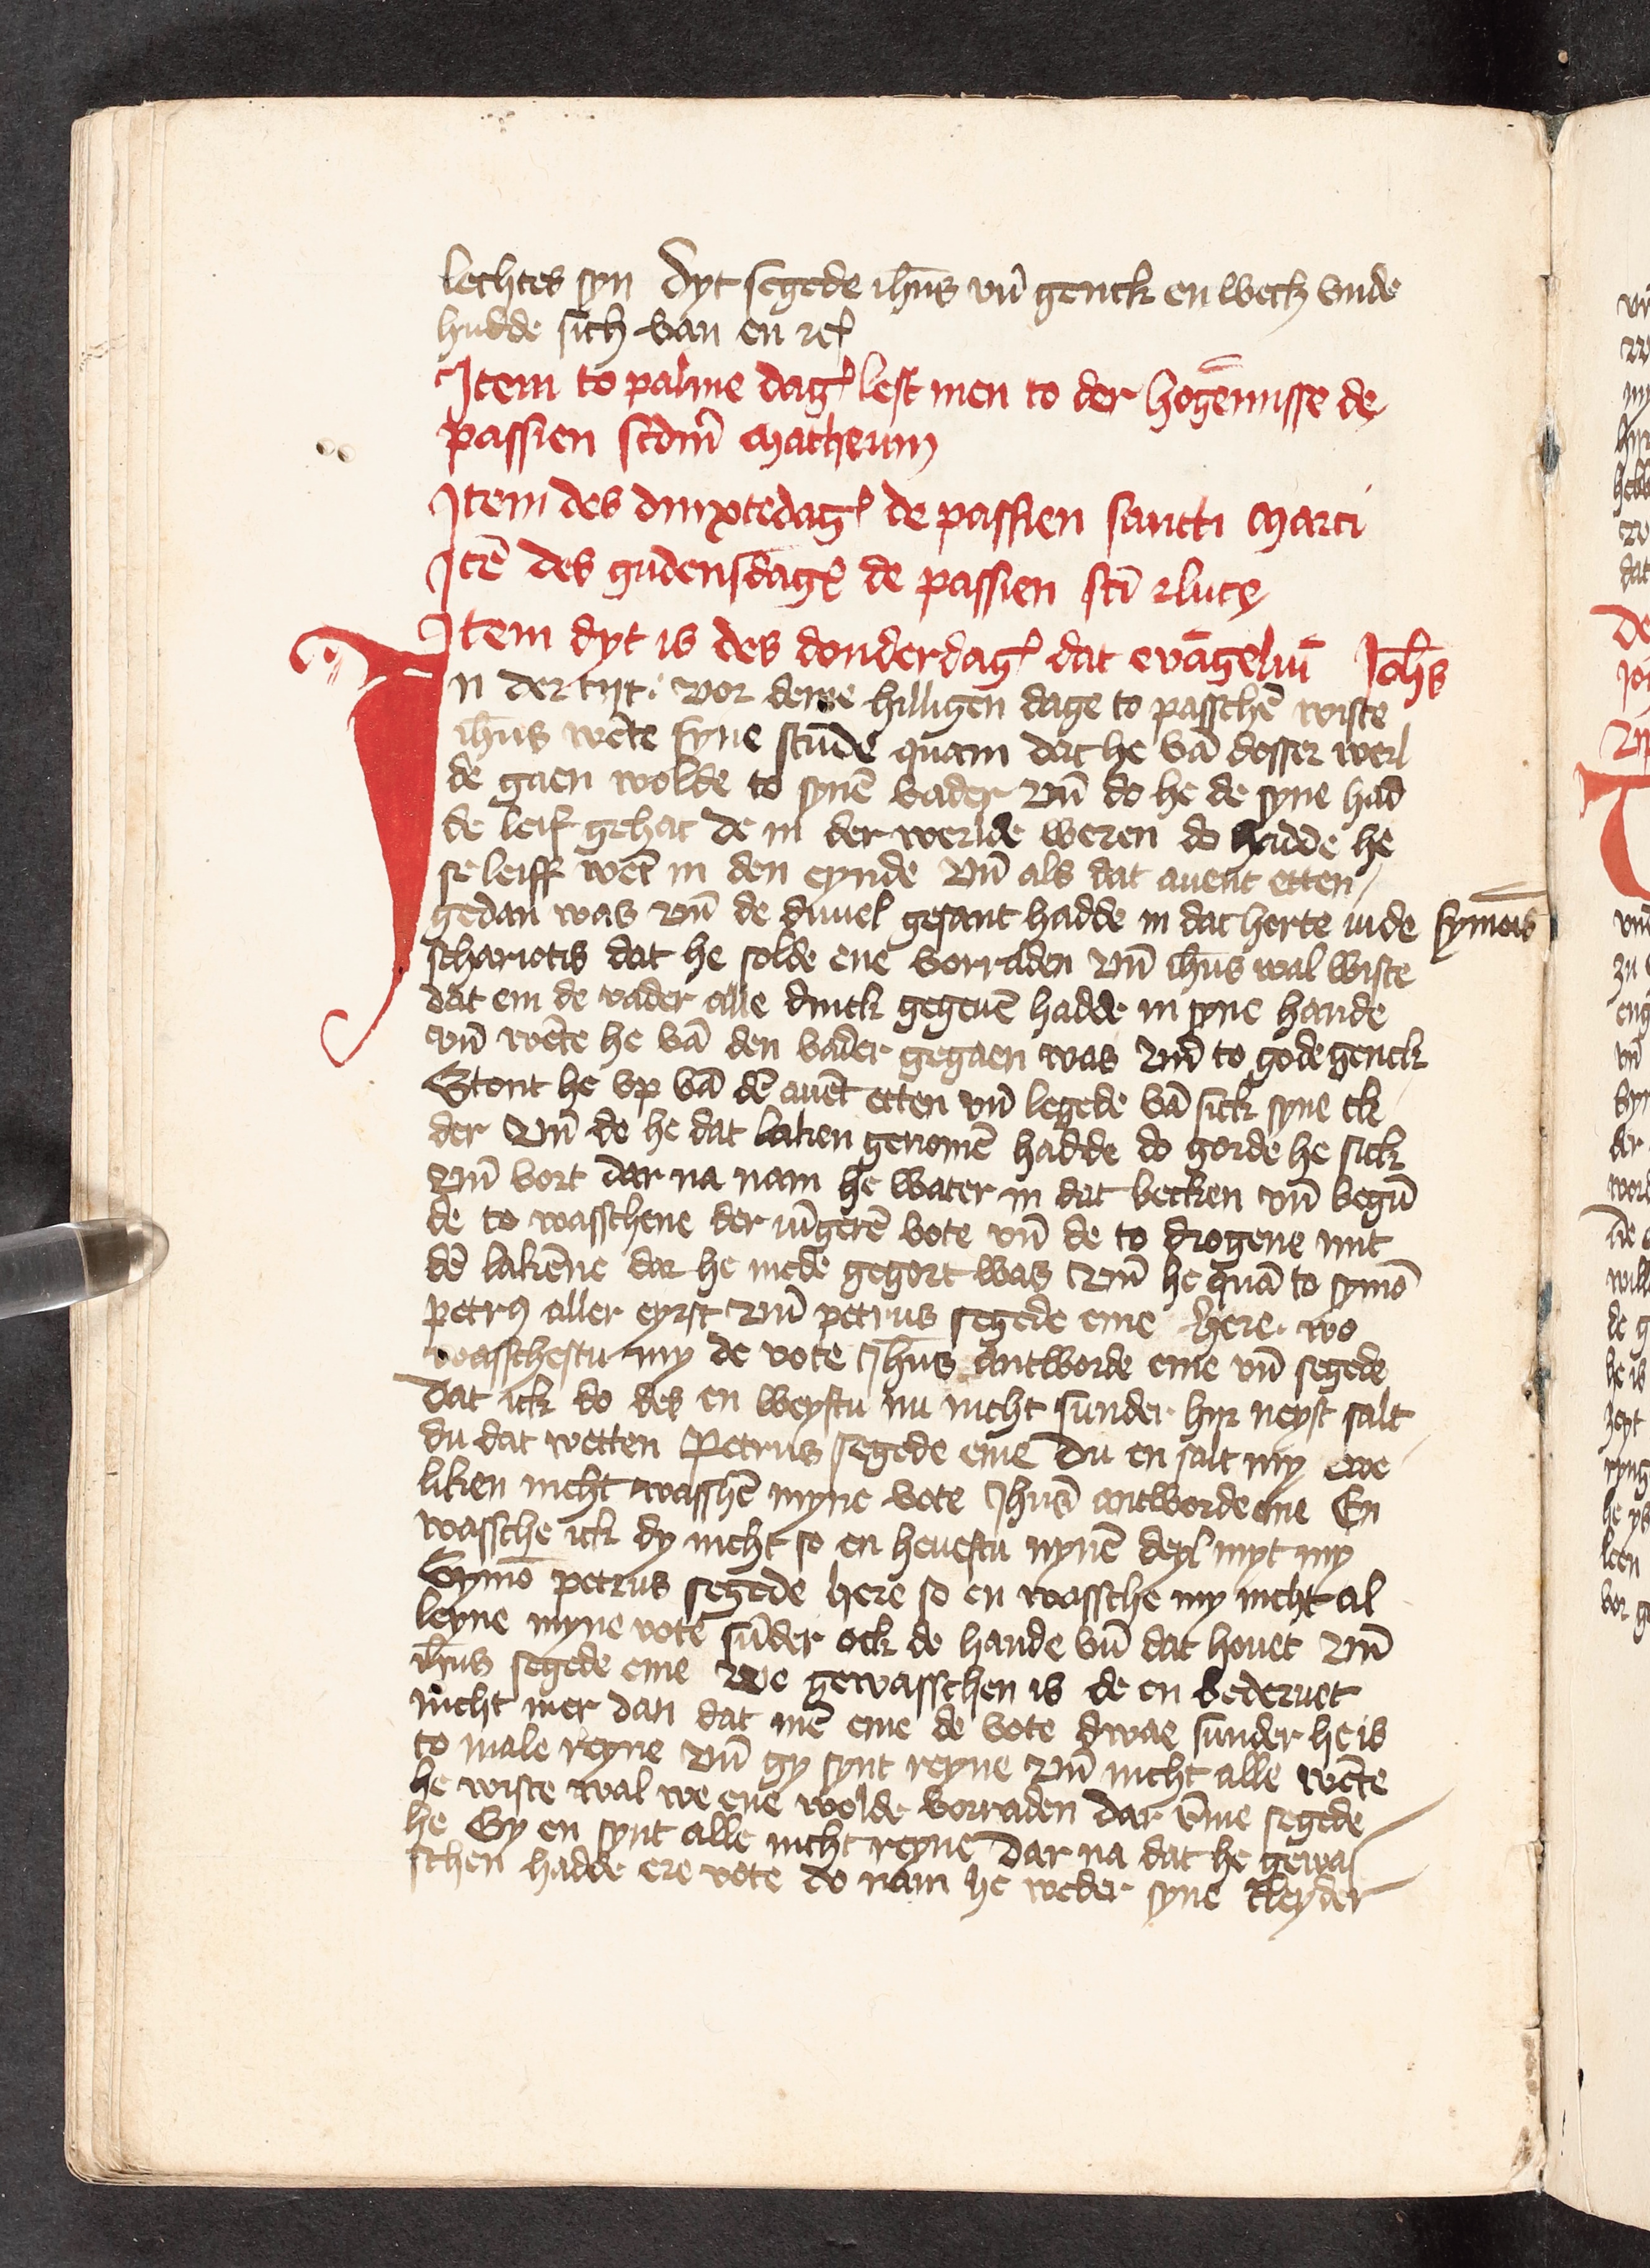 lechtes syn Dyt segede ihūs vn̄ genck en wech vnde
hudde sich van en ꝛcꝭ
Item to palme dagꝭ lest men to der hogēmisse de
passien scdm̄ Matheum
Item des dinxtedagꝭ de passien sancti Marci
Itē des gudensdagꝭ de passien sc̄i Luce
Item dyt is des donderdagꝭ dat evāgeliū Joh̄s
In der tijt vor deme hilligen dage to passchē wiste
ihūs wēte syne stūde quam dat he vā dosser werl
de gaen wolde to synē vader Vn̄ do he de syne had
de leif gehat de in der werlde weren do hadde he
se leiff wēt in den eynde Vn̄ als dat auent etten
gedan was vn̄ de duuel gesant hadde in dat herte iude symōis
schariotis dat he solde ene vorraden Vn̄ ihūs wal wiste
dat em de vader alle dinck gegeuē hadde in syne hande
vn̄ wēte he vā den vader gegaen was Vn̄ to gode genck
Stont he vp vā dē auēt etten vn̄ legede vā sick syne cle
der Vn̄ do he dat laken genomē hadde do gorde he sick
Vn̄ vort dar na nam he water in dat becken vn̄ begū
de to wasschene der iūgerē vote vn̄ de to drogene mit
dē lakēne dar he mede gegort was Vn̄ he quā to symō
petrꝰ aller eyrst Vn̄ petrus segede eme here wo
wasschestu my de vote Jhūs antworde eme vn̄ segede
Dat ick do des en weystu nu nicht sunder hyr neyst salt
du dat wetten Petrus segede eme Du en salt my ewe
liken nicht wasschē myne vote Jhūs antworde eme En
wassche ick dy nicht so en heuestu nynē deyl myt my
Symō petrus segede here so en wassche my nicht al
leyne myne vote sūder ock de hande vn̄ dat houet Vn̄
ihūs segede eme We gewasschen is de en bederuet
nicht mer dan dat mē eme de vote dwae sunder he is
to male reyne Vn̄ gy synt reyne Vn̄ nicht alle wēte
he wiste wal we ene wolde vorraden Dar v̄me segede
he Gy en synt alle nicht reyne Dar na dat he gewas
schen hadde ere vote do nam he weder syne kleyder